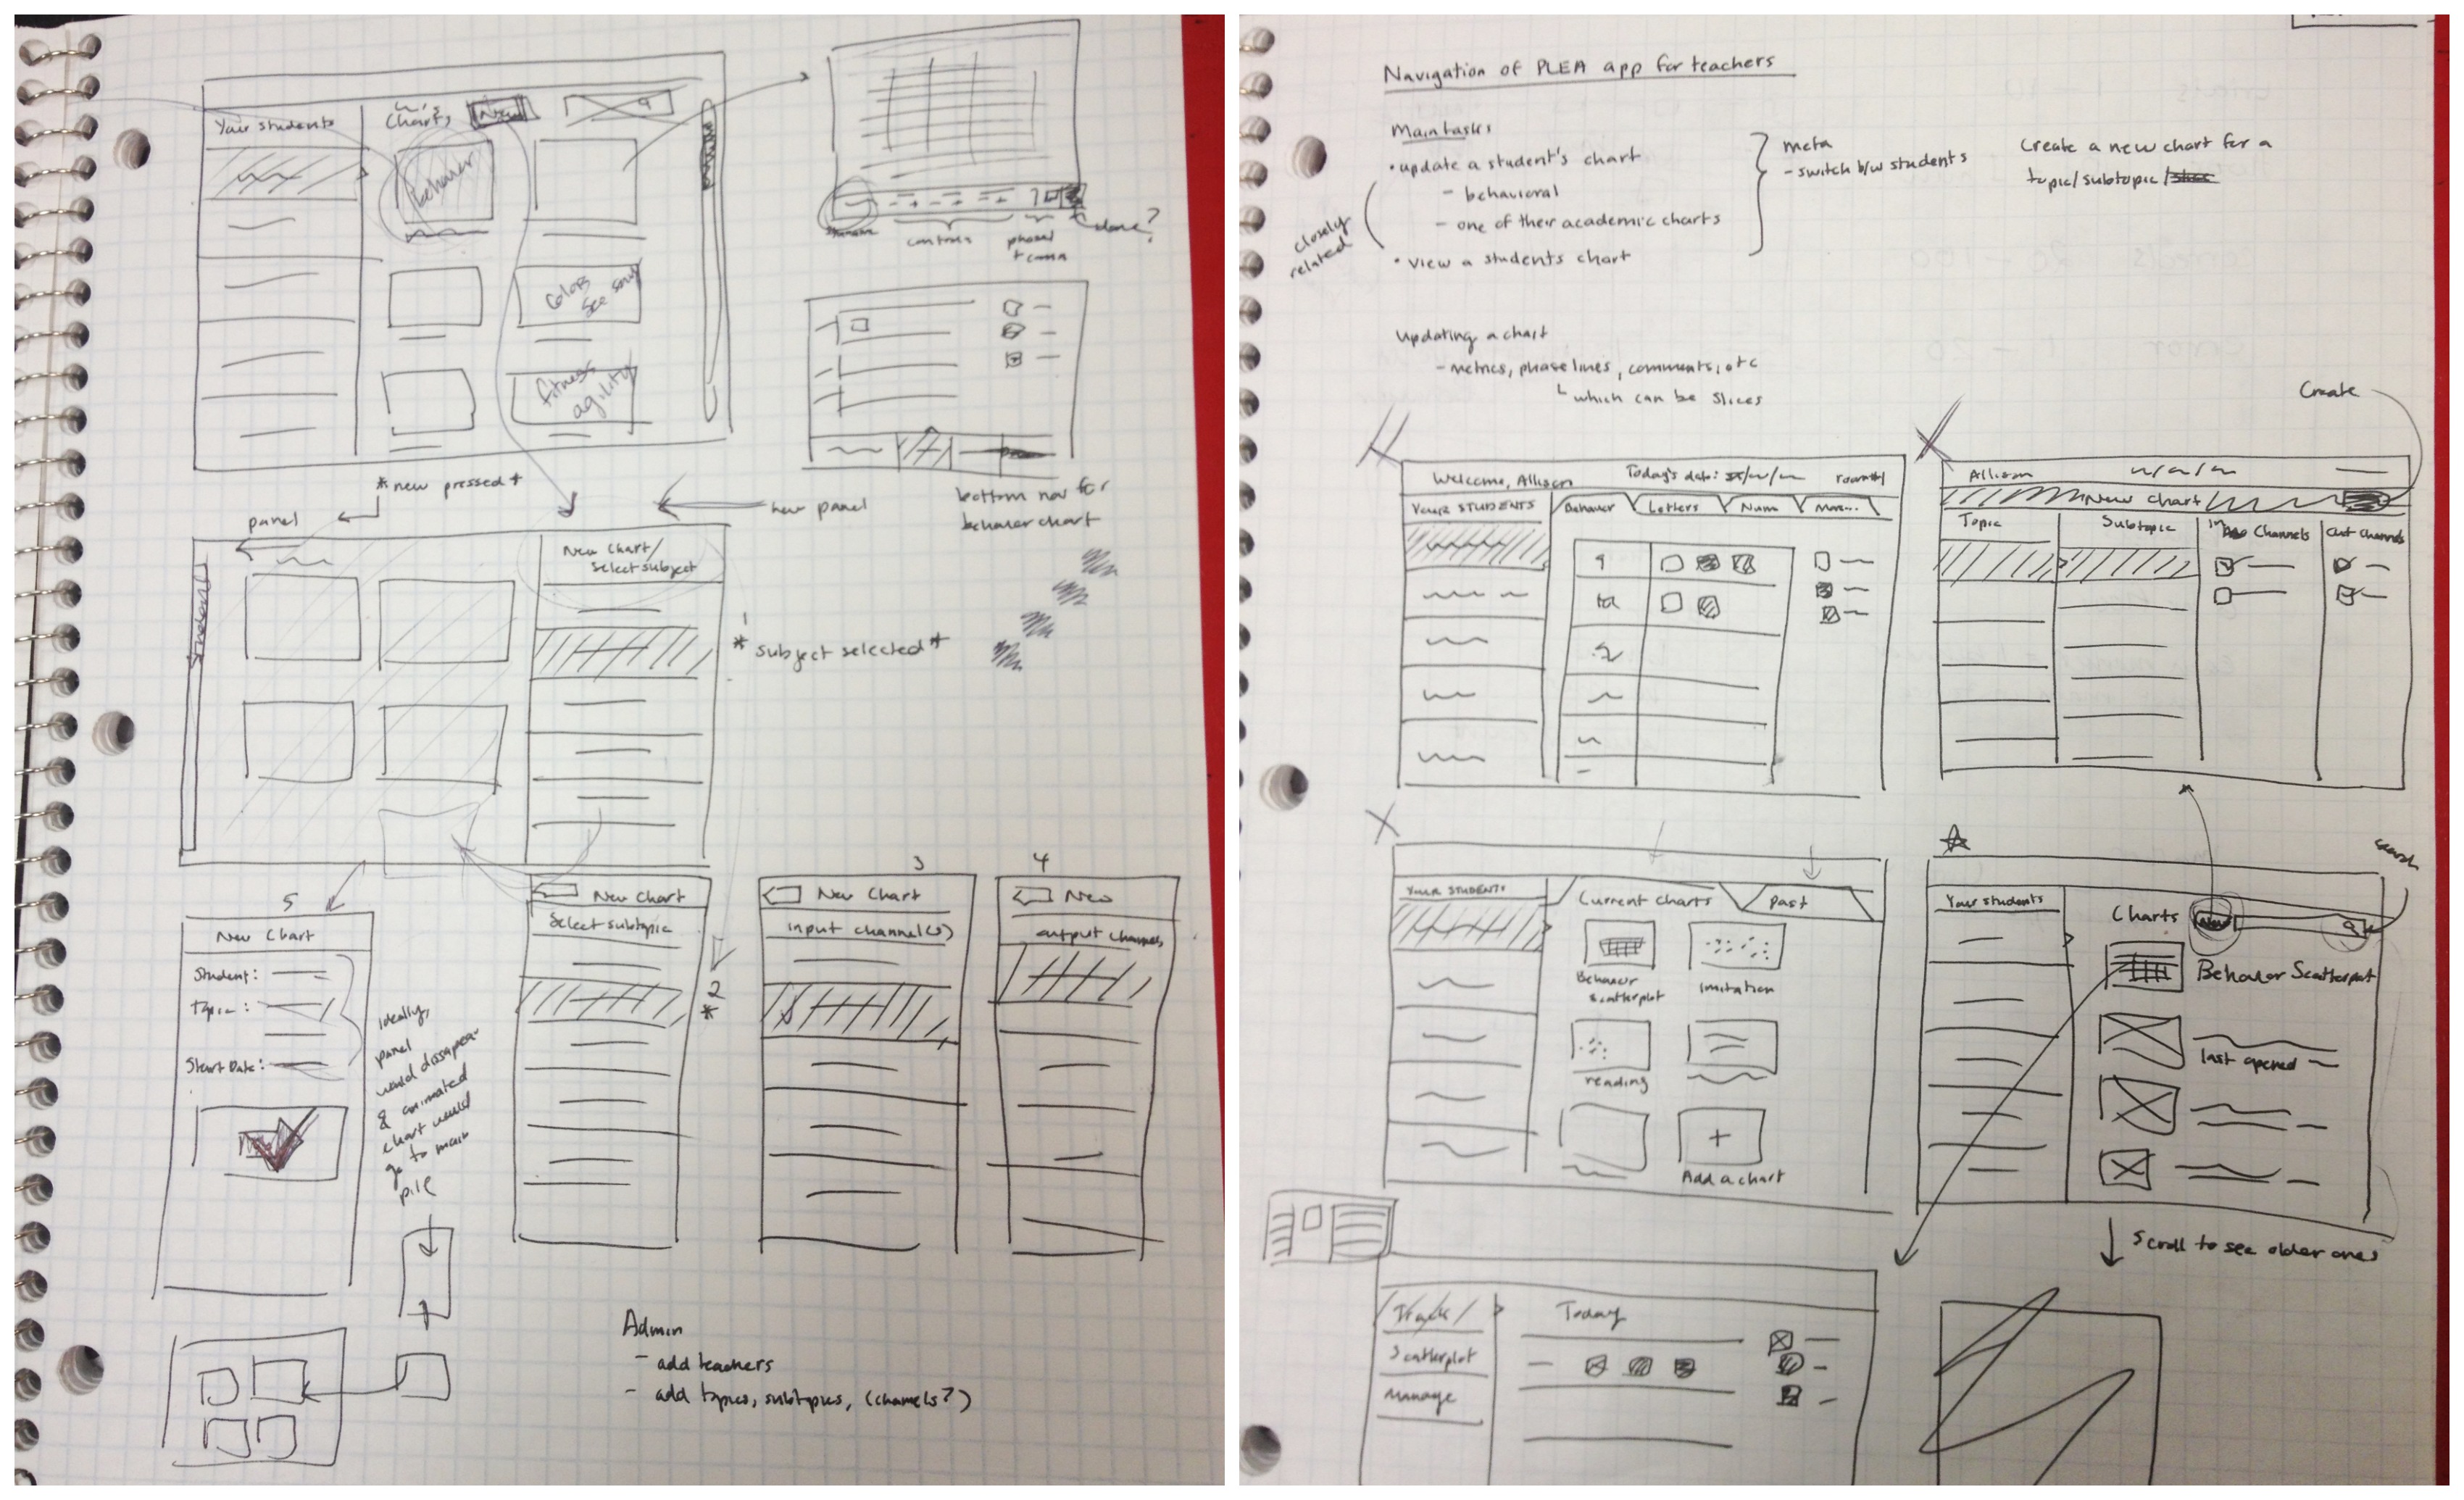 Your students
Charts
New
behavior
fitness
agility
controls
done?
*new pressed*
panel
new panel
bottom nav for
behavior chart
students
New Chart/
Select subject
* subject selected *
5
New Chart
Student:
Topic:
Start Date:
ideally,
panel
would dissapear
& animated
chart would
go to main
pile
New Chart
Select subtopic
2
*
3
New Chart
input channel(s)
4
New
output channels
Admin
- add teachers
- add topics, subtopics, (channels?)
Navigation of PLEA app for teachers
Main tasks
• update a student's chart
- behavioral
- one of their academic charts
• view a students chart
closely
related
meta
- switch b/w students
Create a new chart for a
topic/subtopic/
Updating a chart
- metrics, phase lines, comments, etc
which can be slices
Create
Welcome, Allison
Today's date:
YOUR STUDENTS
Behavior
Letters
Num
More...
Allison
New Chart
Topic
Subtopic
Channels
Out Channels
YOUR STUDENTS
Current Charts
Past
Behavior
scatterplot
imitation
reading
+
Add a chart
search
Your students
Charts
New
Behavior Scatterplot
last opened
Scroll to see older ones
Track
Scatterplot
Manage
Today